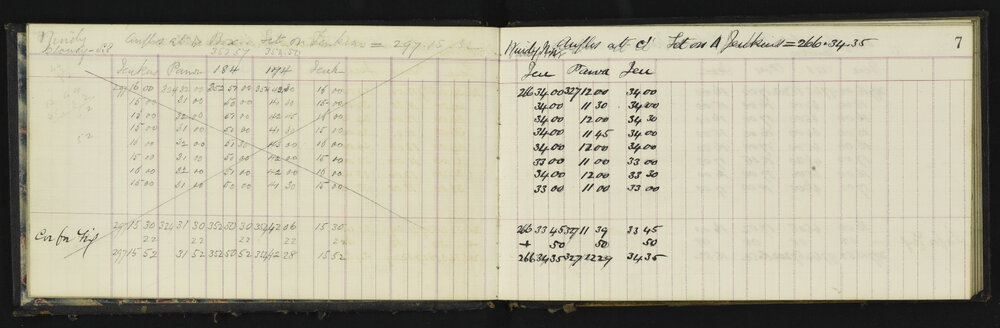 Windy
Cloudy
Angles at
Set on Jenkins = 297.15.52
Jenkins Parwa 184 174 Jenk
297 16 00 32 00 352 51 00 16 00
15 00 31 00 50 00 15 00
16 00 32 00 51 00 42 15 16 00
15 00 31 00 50 00 41 30 15 00
16 00 32 00 51 30 43 00 16 00
15 00 31 00 50 00 42 00 15 00
16 00 32 00 51 00 42 00 16 00
15 00 31 00 50 00 41 30 15 00
297 15 30 324 31 30 352 50 30 354 42 06 15 30
Cor for 22 22 22 22
297 15 52 31 52 352 50 52 354 42 28 15 52
7
Windy Angles at Set on Jenkins = 266.34.35
Jen Parwa Jen
266 34 00 327 12 00 34 00
34 00 11 30 34 00
34 00 12 00 34 30
34 00 11 45 34 00
34 00 12 00 34 00
33 00 11 00 33 00
34 00 12 00 33 30
33 00 11 00 33 00
266 33 45 327 11 39 33 45
+ 50 50 50
266 34 35 327 12 29 34 35